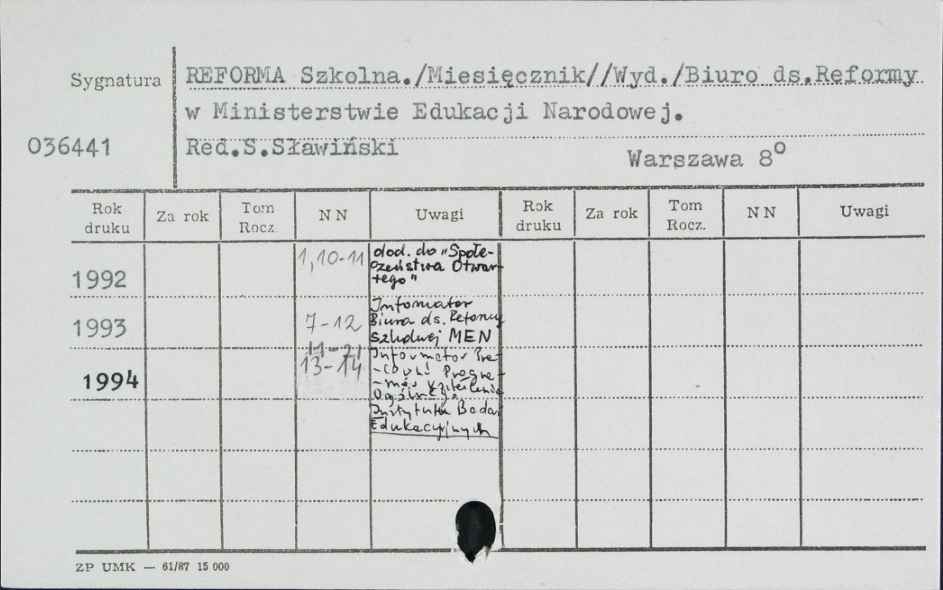 Sygnatura
REFORMA Szkolna./Miesięcznik//Wyd./Biuro ds.Reformy
w Ministerstwie Edukacji Narodowej.
036441
Red.S.Sławiński
Warszawa 8°
Rok druku Za rok Tom Rocz. NN Uwagi Rok druku Za rok Tom Rocz. NN Uwagi
1992 1,10-11
dod. do "Społe-
czeństwa Otwar-
tego"
1993 7-12
Informator
Biura ds. Reformy
szkolnej MEN
1994 13-14
Informator Pra-
cowni Progra-
-mów
Instytutu Badań
Edukacyjnych
ZP UMK — 61/87 15 000